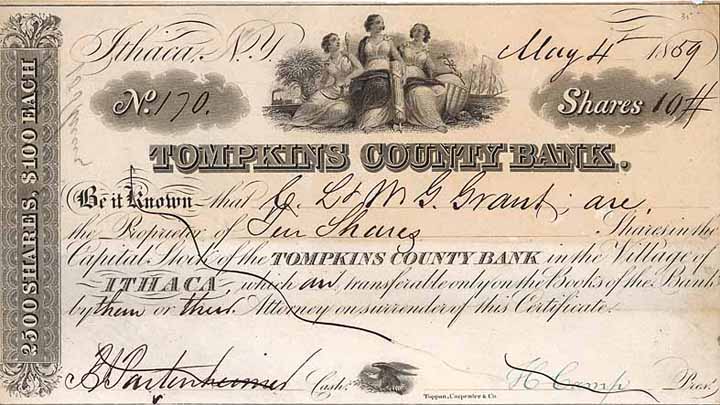 2500 SHARES, $100 EACH
Ithaca, N.Y. May 4th 1859
No. 170. Shares 10#
TOMPKINS COUNTY BANK.
Be it Known that C. L & W. G. Grant, are,
the Proprietor of Ten Shares Shares in the
Capital Stock of the TOMPKINS COUNTY BANK in the Village of
ITHACA, which are, transferable only on the Books of the Bank
by them or their Attorney on surrender of this Certificate.
Cash. H Camp Pres.
Toppan, Carpenter & Co.